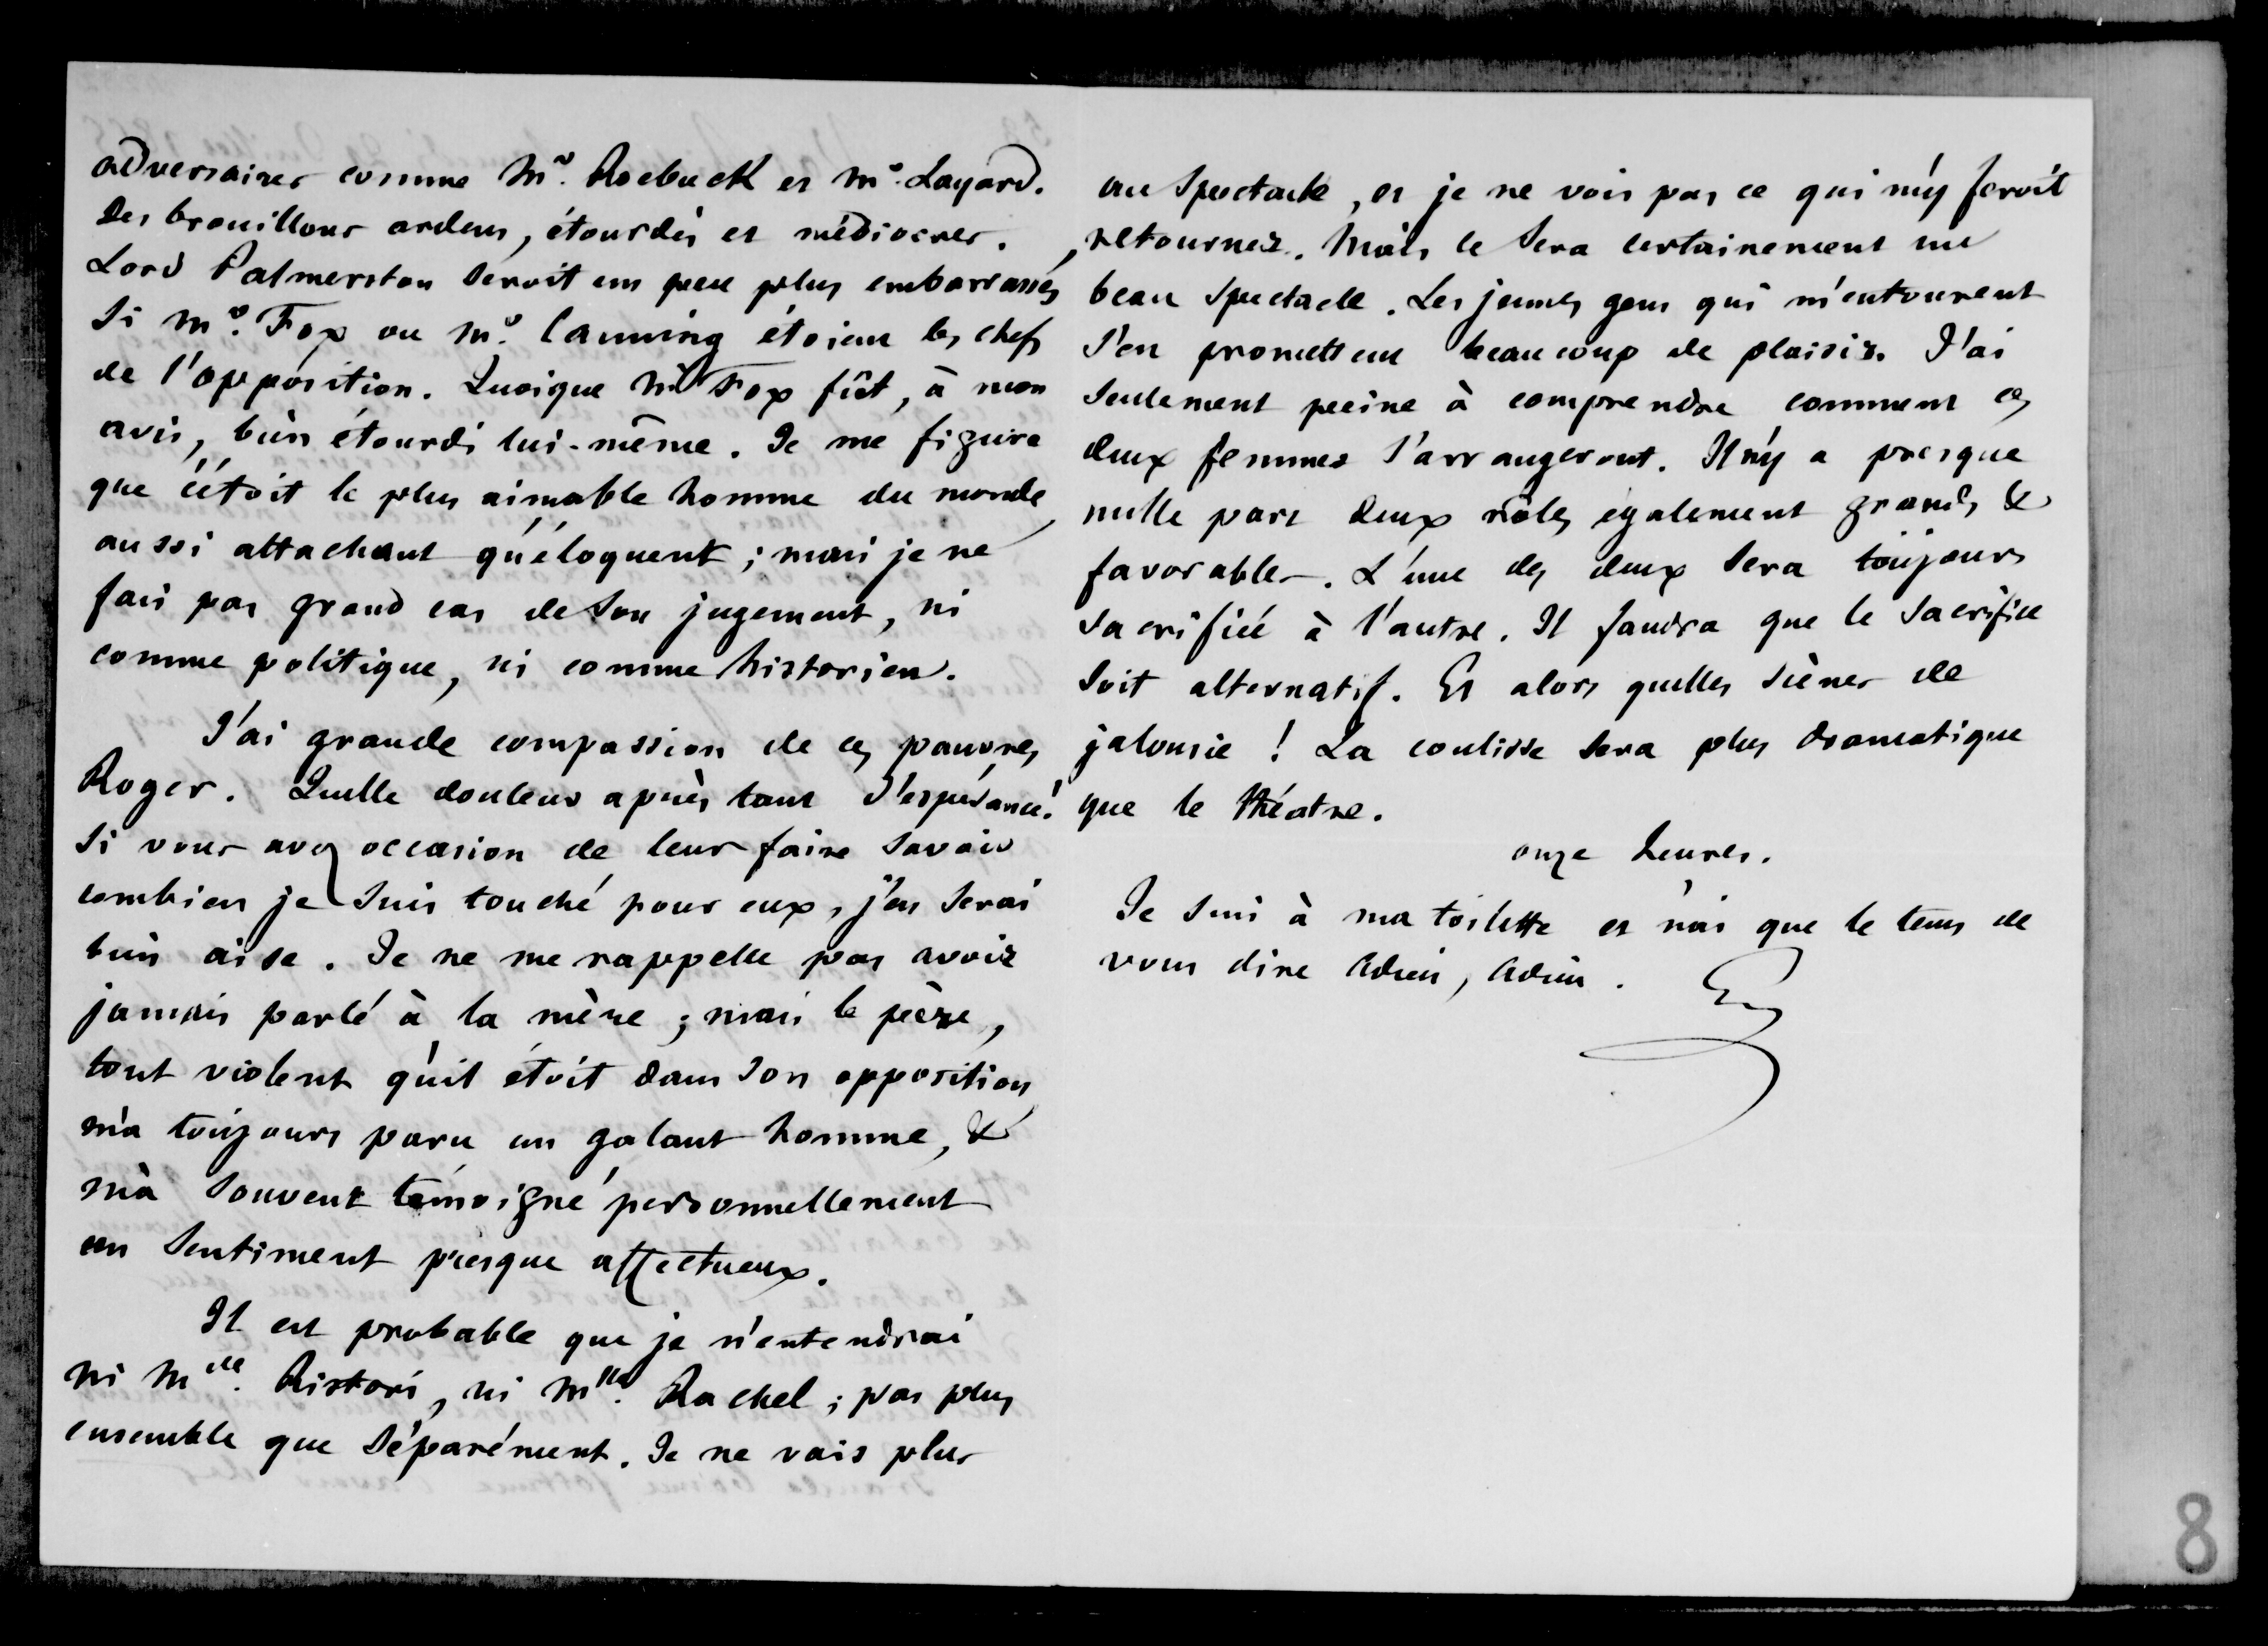 adversaires comme Mr. Roebuck et Mr. Layard.
Des brouillons ardens, étourdis et médiocres.
Lord Palmerston seroit un peu plus embarrassé,
si Mr. Fox ou Mr. Canning étoient les chefs
de l'opposition. Quoique Mr. Fox fût, à mon
avis, bien étourdi lui-même. Je me figure
que c'étoit le plus aimable homme du monde,
aussi attachant qu'éloquent ; mais je ne
fais pas grand cas de son jugement, ni
comme politique, ni comme historien.
J'ai grande compassion de ces pauvres
Roger. Quelle douleur après tant d'espérance !
Si vous avez occasion de leur faire savoir
combien je suis touché pour eux, j'en serai
bien aise. Je ne me rappelle pas avoir
jamais parlé à la mère ; mais le père,
tout violent qu'il étoit dans son opposition,
m'a toujours paru un galant homme, &
m'a souvent témoigné personnellement
un sentiment presque affectueux.
Il est probable que je n'entendrai
ni Mlle. Ristori, ni Mlle. Rachel ; pas plus
ensemble que séparément. Je ne vais plus
au spectacle, et je ne vois pas ce qui m'y feroit
retourner. Mais ce sera certainement un
beau spectacle. Les jeunes gens qui m'entourent
s'en promettent beaucoup de plaisir. J'ai
seulement peine à comprendre comment ces
deux femmes s'arrangeront. Il n'y a presque
nulle part deux rôles également grands &
favorables. L'une des deux sera toujours
sacrifiée à l'autre. Il faudra que le sacrifice
soit alternatif. Et alors quelles scènes de
jalousie ! La coulisse sera plus dramatique
que le théatre.
onze heures.
Je suis à ma toilette et n'ai que le tems de
vous dire adieu, adieu.
8